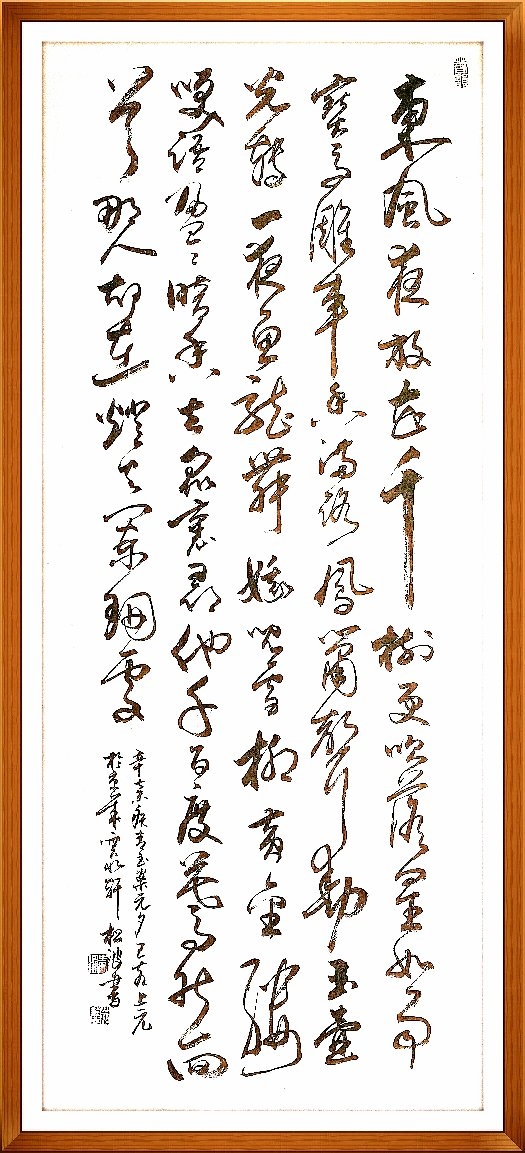 東風夜放花千樹更吹落星如雨
寶馬雕車香滿路鳳簫聲動玉壺
光轉一夜魚龍舞蛾兒雪柳黃金縷
笑語盈〻暗香去眾裏尋他千百度驀然回
首那人却在燈火闌珊處
辛棄疾青玉案元夕己亥上元
於京華雲軒松波書